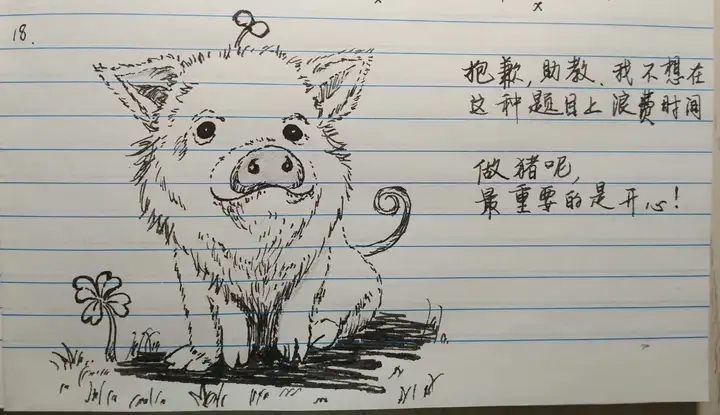 18.
抱歉,助教、我不想在
这种题目上浪费时间
做猪呢,
最重要的是开心!